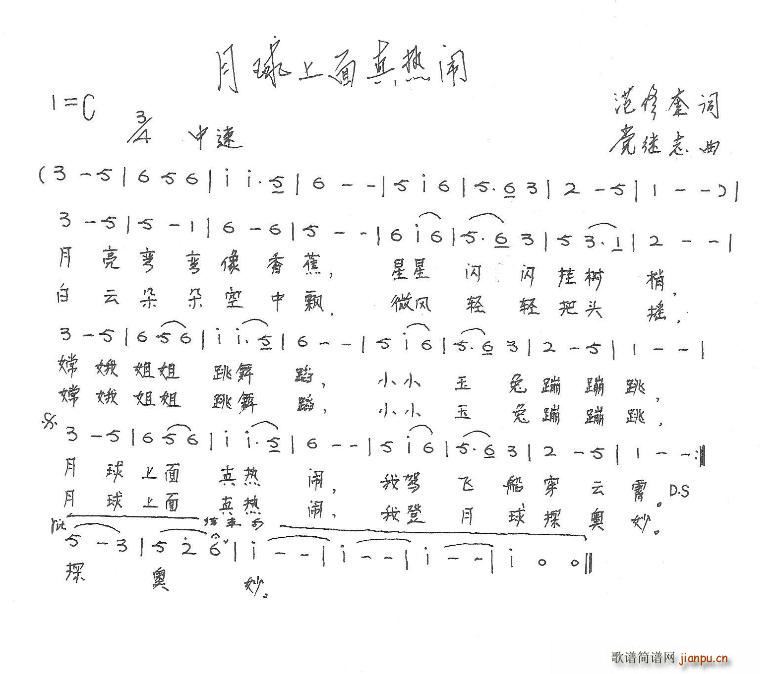 月球上面真热闹
1=C 3/4 中速
范修奎 词
党继志 曲
(3 - 5 | 6 5 6 | i i. 5 | 6 - - | 5 i 6 | 5. 6 3 | 2 - 5 | 1 - - ) |
3 - 5 | 5 - 1 | 6 - 6 | 5 - - | 6 i 6 | 5. 6 3 | 5 3. 1 | 2 - - |
月亮弯弯像香蕉, 星星闪闪挂树梢,
白云朵朵空中飘, 微风轻轻把头摇,
3 - 5 | 6 5 6 | i i. 5 | 6 - - | 5 i 6 | 5. 6 3 | 2 - 5 | 1 - - |
嫦娥姐姐跳舞蹈, 小小玉兔蹦蹦跳,
嫦娥姐姐跳舞蹈, 小小玉兔蹦蹦跳,
3 - 5 | 6 5 6 | i i. 5 | 6 - - | 5 i 6 | 5. 6 3 | 2 - 5 | 1 - - :||
月球上面真热闹, 我驾飞船穿云霄。 D.S
月球上面真热闹, 我登月球探奥妙。
结束句
5 - 3 | 5 2 6 | i - - | i - - | i - - | i 0 0 ||
探奥妙。
歌谱简谱网
jianpu.cn